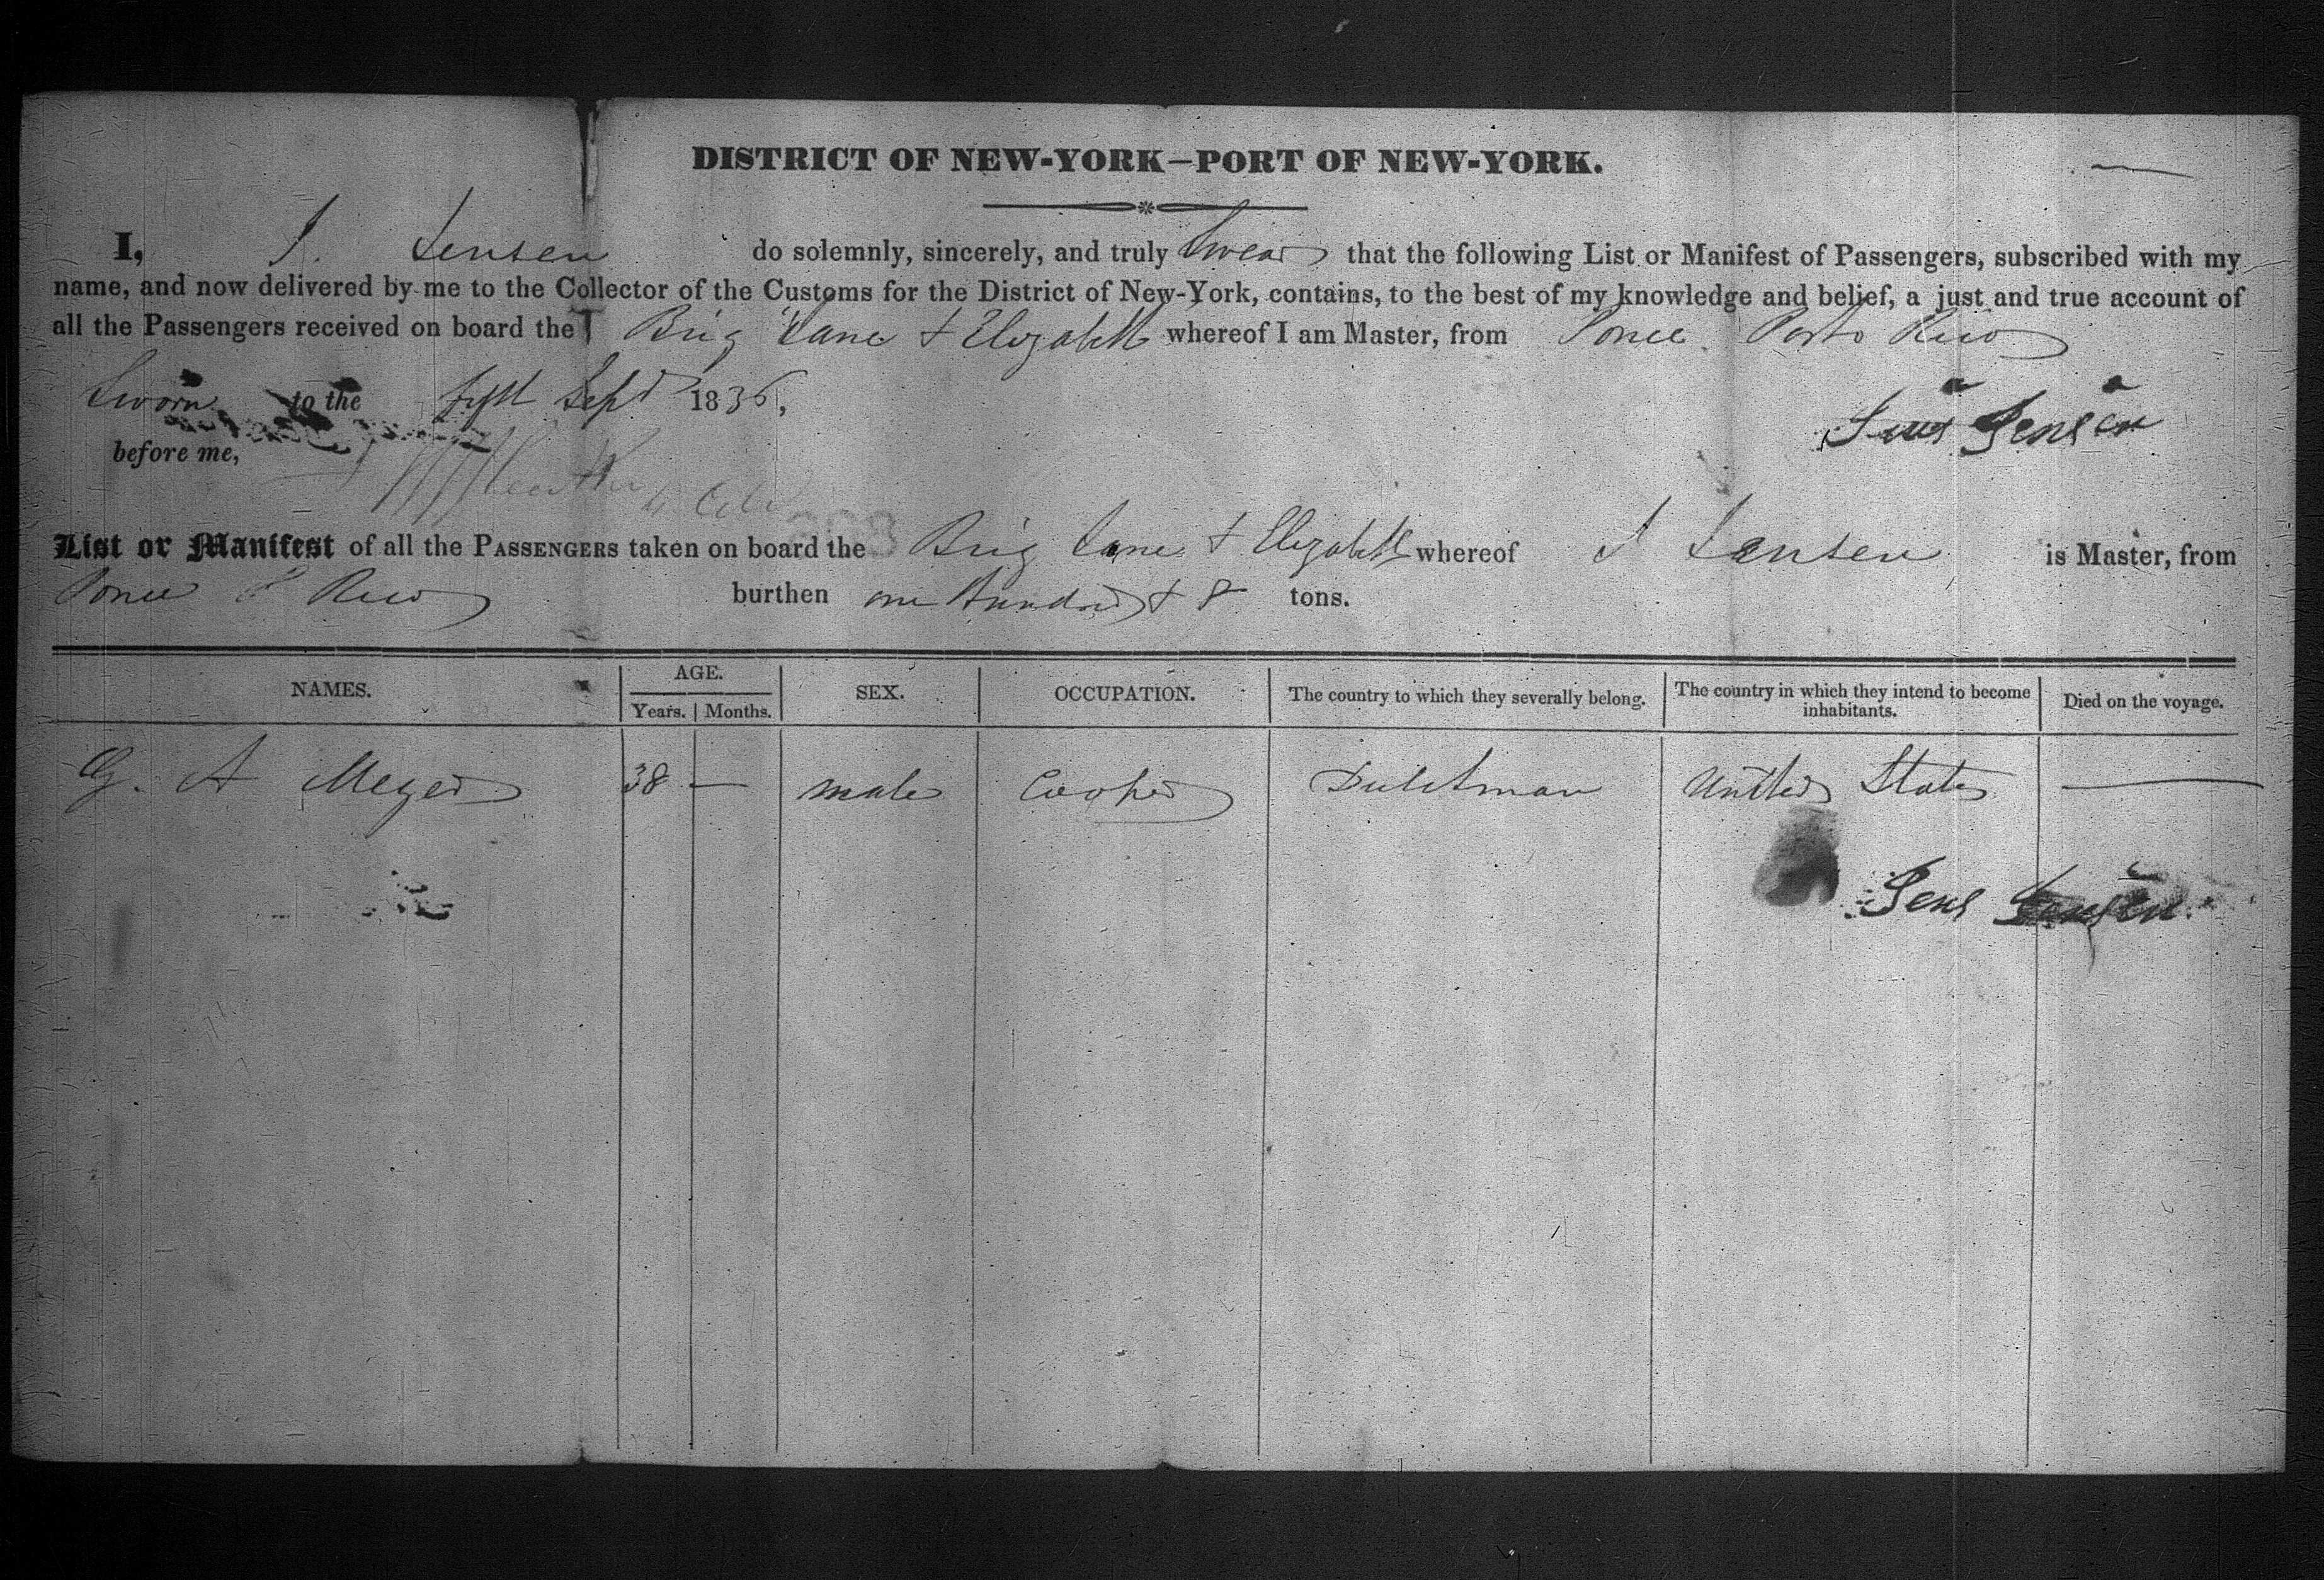 DISTRICT OF NEW-YORK—PORT OF NEW-YORK.
I, J. Jensen do solemnly, sincerely, and truly Swear that the following List or Manifest of Passengers, subscribed with my
name, and now delivered by me to the Collector of the Customs for the District of New-York, contains, to the best of my knowledge and belief, a just and true account of
all the Passengers received on board the Brig Jane & Elizabeth whereof I am Master, from Ponce Porto Rico
Sworn to the first Sept 1836,
Jens Jensen
before me,
List or Manifest of all the PASSENGERS taken on board the Brig Jane & Elizabeth whereof J Jensen is Master, from
Ponce P Rico burthen one Hundred & 8 tons.
NAMES. AGE. SEX. OCCUPATION. The country to which they severally belong. The country in which they intend to become inhabitants. Died on the voyage.
Years. Months.
G. A Meyer 38 — male Cooper Dutchman United States —
Jens Jensen